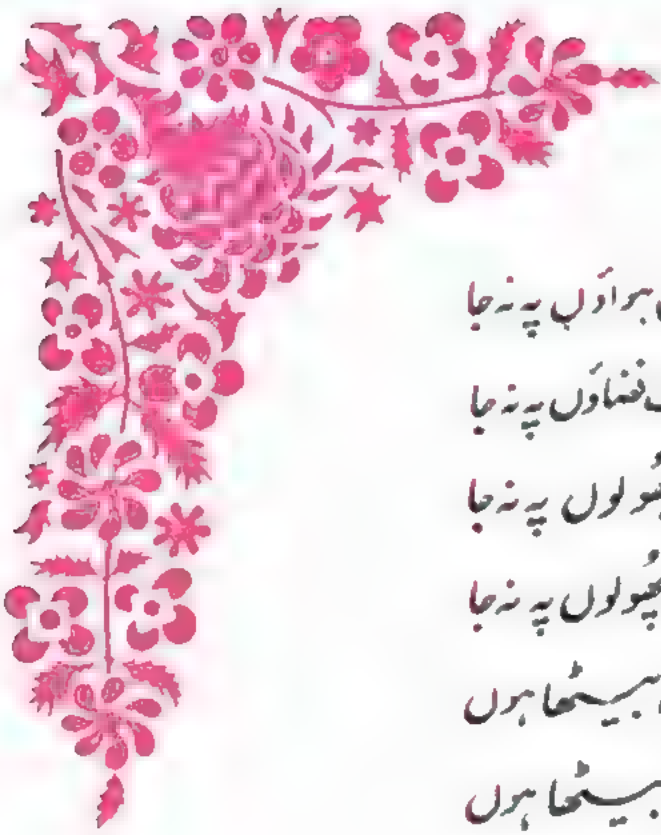 ہواؤں پہ نہ جا
فضاؤں پہ نہ جا
پہ نہ جا
پھولوں پہ نہ جا
بیٹھا ہوں
بیٹھا ہوں